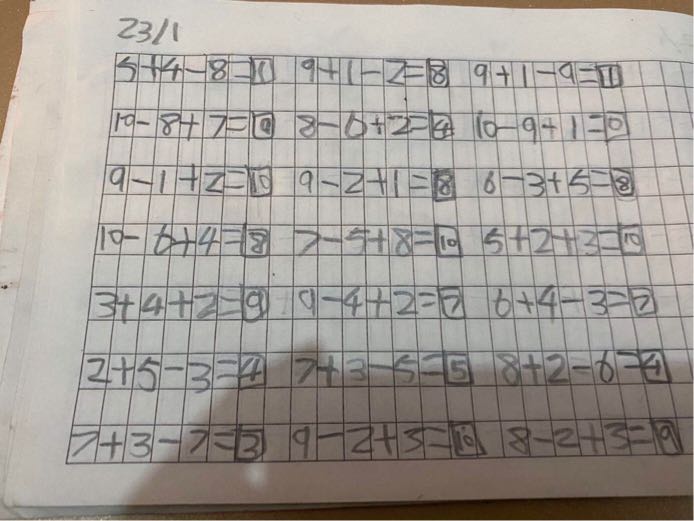 23/1
5+4-8=1 9+1-2=8 9+1-9=1
10-8+7=9 8-6+2=4 10-9+1=0
9-1+2=10 9-2+1=8 6-3+5=8
10-6+4=8 7-5+8=10 5+2+3=10
3+4+2=9 9-4+2=7 6+4-3=7
2+5-3=4 7+3-5=5 8+2-6=4
7+3-7=3 9-2+3=10 8-2+3=9